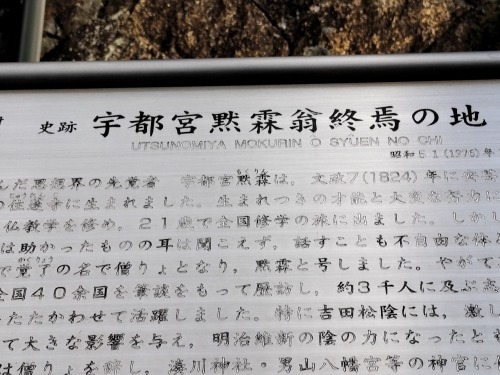 史跡 宇都宮黙霖翁終焉の地
UTSUNOMIYA MOKURIN O SYUEN NO CHI
昭和51(1976)年
んだ思想界の先覚者 宇都宮黙霖は,文政7(1824)年に
に生まれました。生まれつきの才能と大変な努力に
仏教学を修め,21歳で全国修学の旅に出ました。しかし
は助かったものの耳は聞こえず,話すことも不自由な体と
で覚了の名で僧りょとなり,黙霖と号しました。やがて
全国40余国を筆談をもって歴訪し,約3千人に及ぶ
たたかわせて活躍しました。特に吉田松陰には,激し
て大きな影響を与え,明治維新の陰の力になったと
は僧りょを辞し,湊川神社・男山八幡宮等の神官に